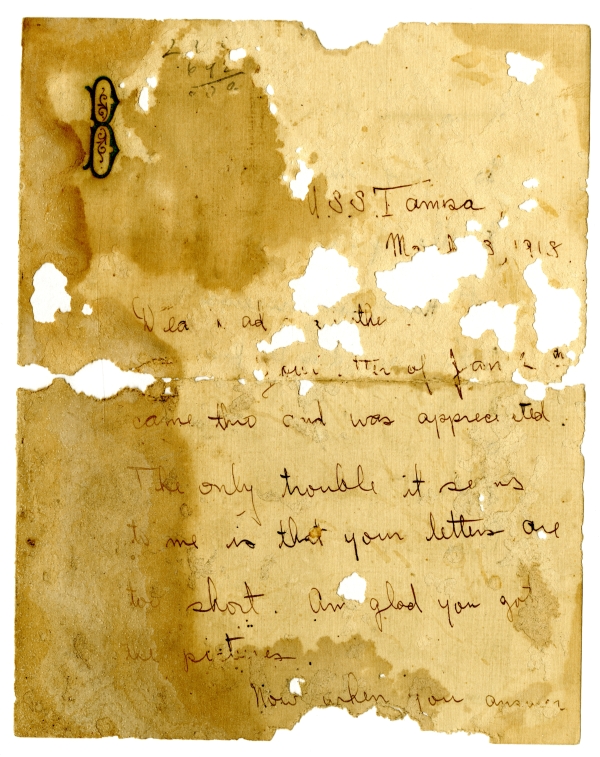 U.S.S. Tampa
8, 1918.
of Jan
came thro and was appreciated.
The only trouble it seems
to me is that your letters are
too short. Am glad you got
the pictures.
Now when you answer